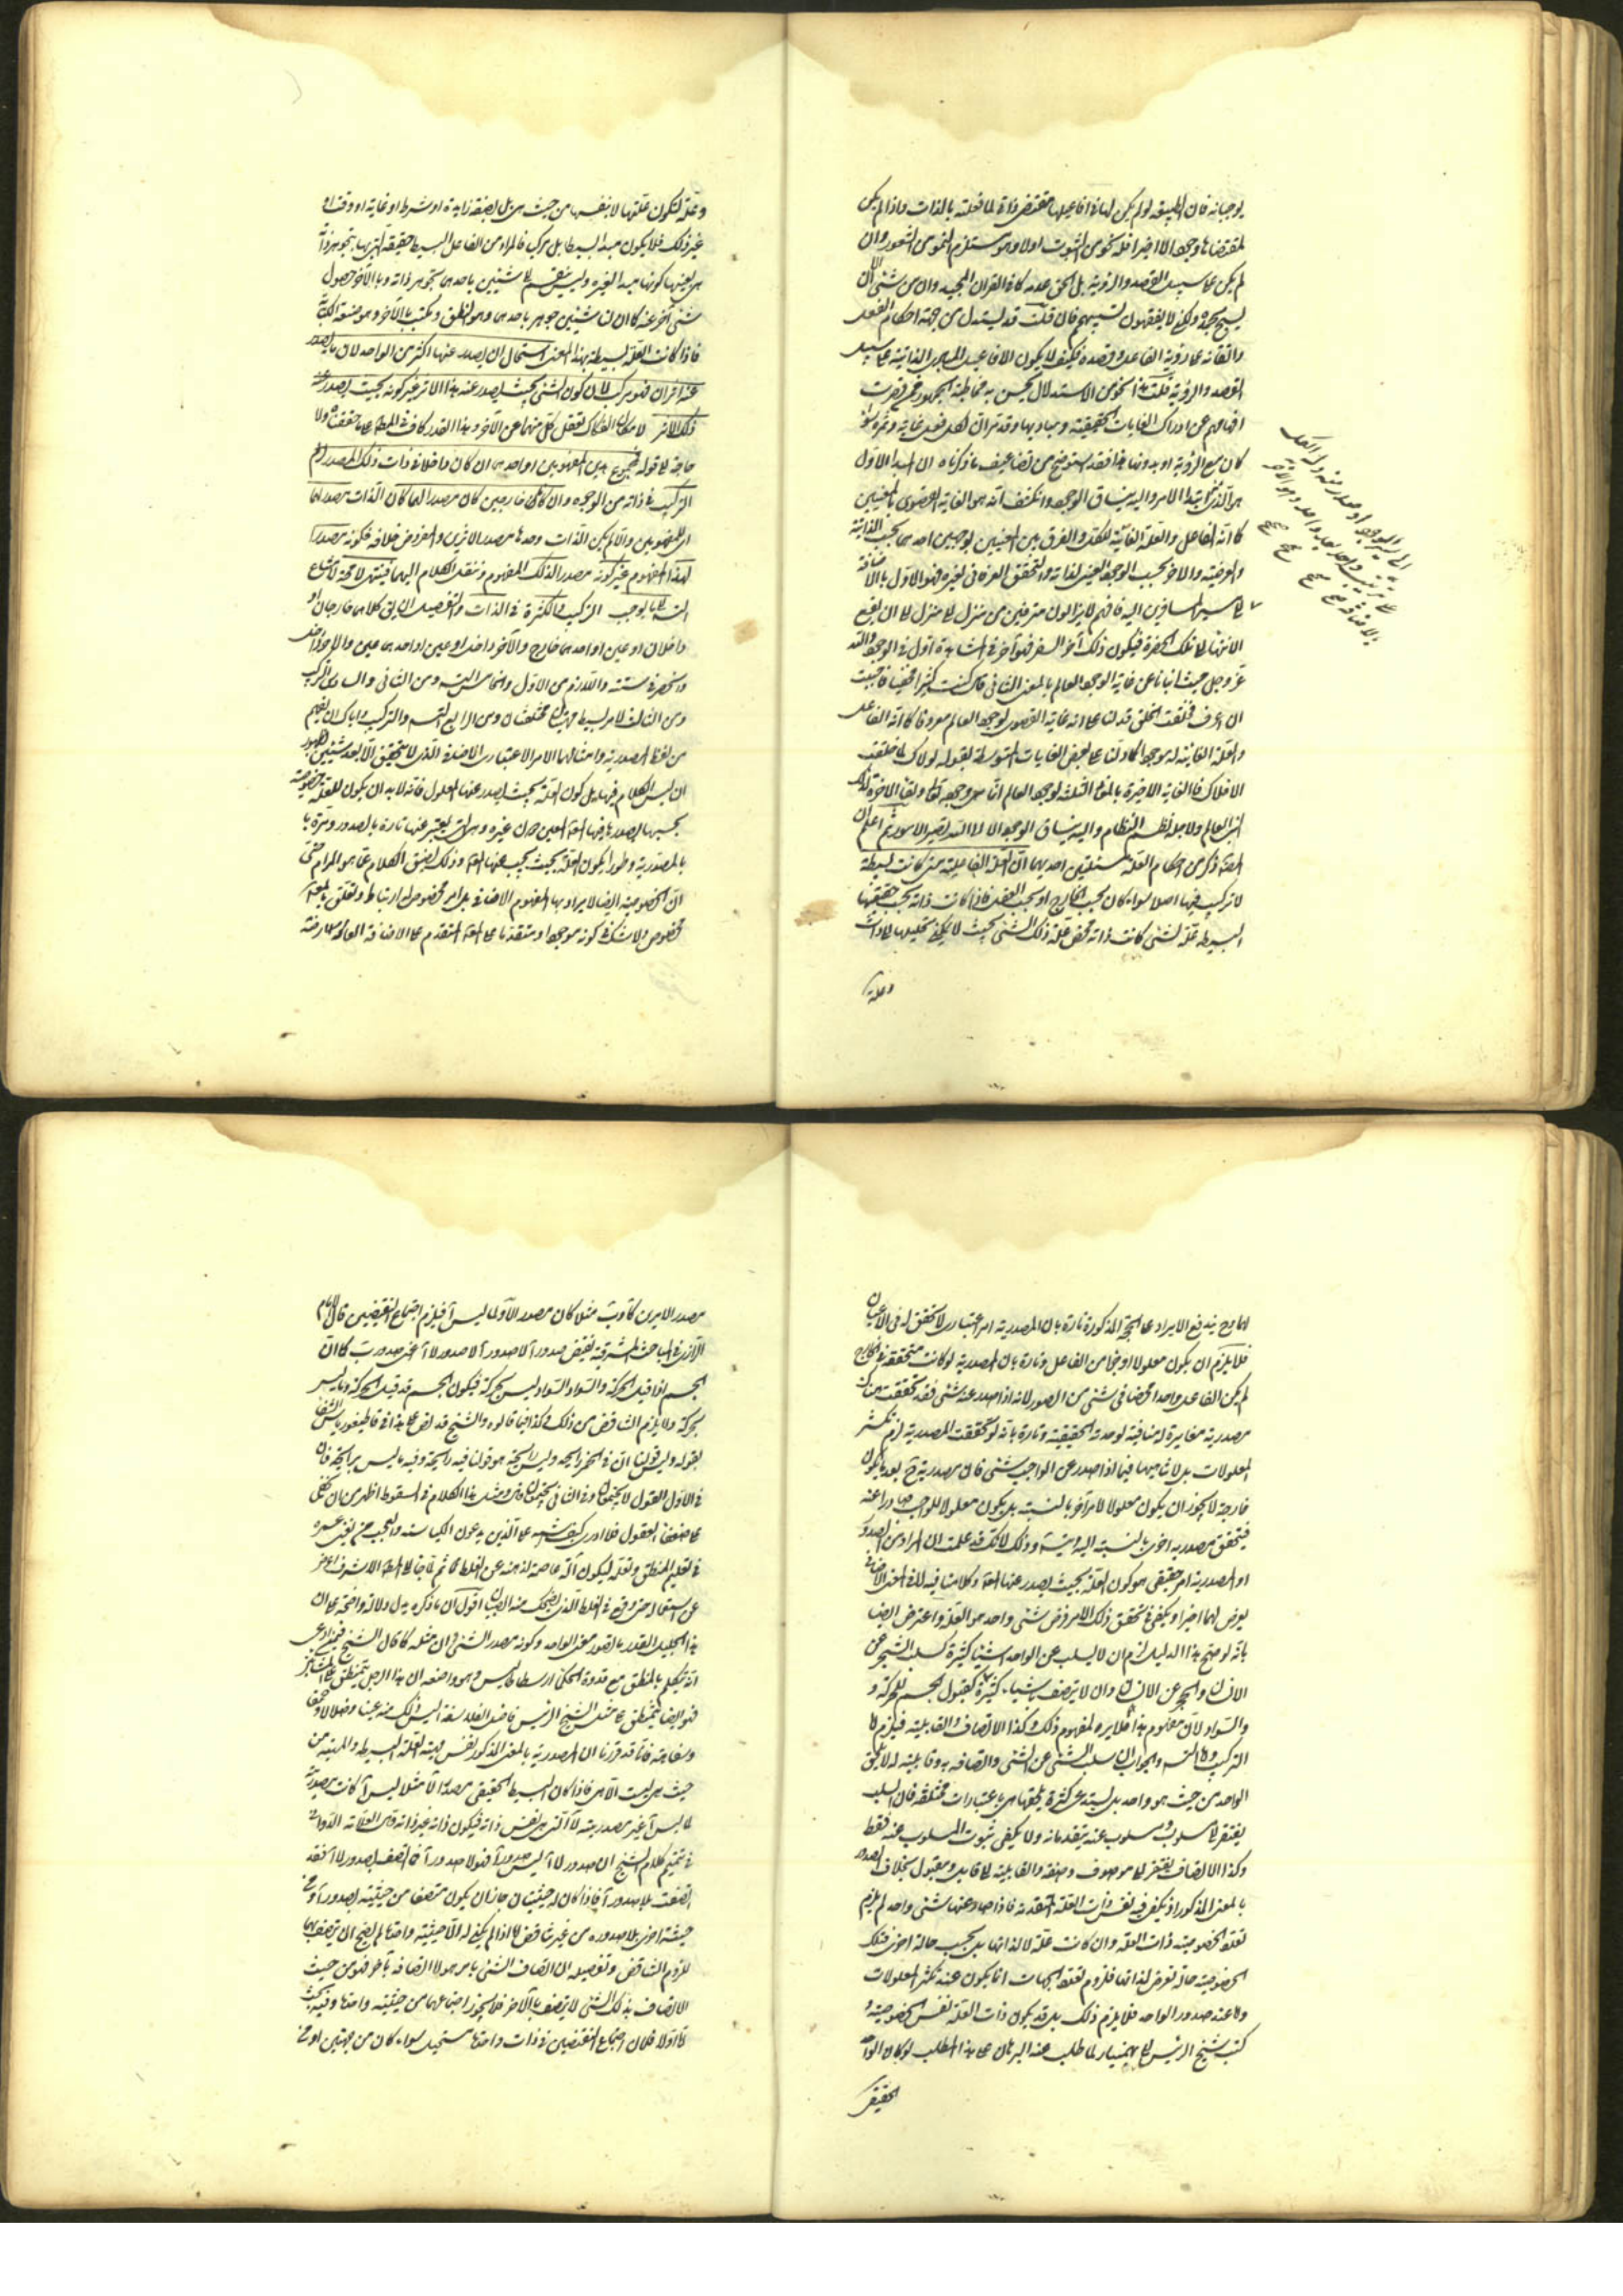 يوجبانه فان الطبيعة لو لم يكن لها في افاعيلها مقتضى ذاتي لما فعلته بالذات واذا لم يكن
لمقتضاها وجود الا اخيرا فله نحو من الثبوت اولا وهو مستلزم لنحو من الشعور وان
لم يكن على سبيل القصد والروية بل الحق عدمه كما في القران المجيد وان من شئ الا
يسبح بحمده ولكن لا يفقهون تسبيحهم فان قلت قد يستدل من جهة احكام الفعل
واتقانه على روية الفاعل وقصده فكيف لا يكون الافاعيل
القصد والروية قلت هذا النحو من الاستدلال يحسن به مخاطبة الجمهور ممن قصرت
افهامهم عن ادراك الغايات الحقيقية ومباديها وقد مر ان لكل فعل غاية وثمرة سواء
كان مع الروية او بدونها هذا فقد استوضح من تضاعيف ما ذكرناه ان المبدا الاول
هو الذي ابتدا الامر واليه ينساق الوجود وانكشف انه هو الغاية القصوى بالمعنيين
كما انه الفاعل والعلة الغائية للكل والفرق بين المعنيين بوجهين احدهما بحسب الذاتية
والعرضية والاخر بحسب الوجود العيني لذاته والتحقق العرفاني لغيره فهو الاول بالاضافة
الى سير المسافرين اليه فانهم لا يزالون مترقين من منزل الى منزل الى ان يقع
الانتهاء الى تلك الحضرة فيكون ذلك آخر السفر فهو آخر في المشاهدة اول في الوجود والله
عز وجل حيث انبانا عن غاية الوجود العالم بالمعنى الثاني قال كنت كنزا مخفيا فاحببت
ان اعرف فخلقت الخلق قد لنا على انه غاية القصوى لوجود العالم معروفا كما انه الفاعل
والعلة الغائية له موجودا كما دلنا على بعض الغايات المتوسطة بقوله لولاك لما خلقت
الافلاك فالغاية الاخيرة بالمعنى الثلثة لوجود العالم انما هو وجوده تعالى ولقاء الاخرة لذلك
بنى العالم ولاجله نظم النظام واليه ينساق الوجود الا الى الله تصير الامور ثم اعلم ان
المصنف ذكر من احكام العلة مسئلتين احديهما ان العلة الفاعلية متى كانت بسيطة
لا تركيب فيها اصلا سواء كان بحسب الخارج او بحسب العقل فاذا كانت ذاته بحسب حقيقتها
البسيطة علة لشئ كانت ذاته محض علة ذلك الشئ بحيث لا يمكن تحليلها الى ذات
وعلة
الى غير الوجود اذ صدر منه ولد العقل
على ترتيبه واحدا بعد واحد وهو الاخر
بالاضافة صح صح صح
وعلة لتكون علتها لا بنفسها من حيث هي بل بصفة زايدة او شرط او غاية او وقت او
غير ذلك فلا يكون مبدا بسيطا بل مركبا فالمراد من الفاعل البسيط حقيقة التي بها يتجوهر ذاته
هي بعينها كونها مبدا لغيره وليس ينقسم الى شيئين باحدهما تجوهر ذاته وبالآخر حصول
شئ آخر عنه كما ان لنا شيئين جوهر باحدهما وهو النطق ونكتب بالآخر وهو صنعة الكتابة
فاذا كانت العلة بسيطة بهذا المعنى استحال ان يصدر عنها اكثر من الواحد لان ما يصدر
عنه اثران فهو مركب لان كون الشئ بحيث يصدر عنه هذا الاثر غير كونه بحيث يصدر عنه
ذلك الاثر لامكان انفكاك تعقل كل منهما عن الآخر وهذا القدر كاف في المطلوب على ما حققناه ولا
حاجة الى قوله فمجموع هذين المفهومين او احدهما ان كان داخلا في ذات ذلك المصدر لزم
التركيب في ذاته من الوجوه وان كانا خارجين كان مصدرا لهما كان الذات مصدر لها
اي للمفهومين والا لم يكن الذات وحدها مصدر الاثرين والمفروض خلافه فكونه مصدرا
لهذا المفهوم غير كونه مصدرا لذلك المفهوم وننقل الكلام اليهما فينتهي لا محالة لامتناع
التسلسل الى ما يوجب التركيب والكثرة في الذات والتفصيل ان يق كلاهما خارجان او
داخلان او عين او احدهما خارج والآخر داخل او عين او احدهما عين والاخر داخل
وانحصر في ستة واللازم من الاول والخامس التس ومن الثاني والسادس التركيب
ومن الثالث لامر بسيط ماهيتان مختلفتان ومن الرابع التس والتركيب واياك ان يفهم
من لفظ المصدرية وامثالها الامر الاعتباري الاضافي الذي لا يتحقق الا بعد شيئين لظهور
ان ليس الكلام فيها بل كون العلة بحيث يصدر عنها المعلول فانه لا بد ان يكون للعلة خصوصية
بحسبها يصدر عنها المعلول المعين دون غيره وهي التي يعبر عنها تارة بالصدور ومرة با
بالمصدرية وطورا بكون العلة بحيث يجب عنها المعلول وذلك لضيق الكلام عما هو المرام حتى
ان الخصوصية ايضا لا يراد بها المفهوم الاضافي بل امر مخصوص له ارتباط وتعلق بالمعلول
المخصوص ولا شك في كونه موجودا ومتقدما على المعلول المتقدم على الاضافة العارضة
لهما وح يندفع الايراد على الحجة المذكورة تارة بان المصدرية امر اعتباري لا تحقق له في الاعيان
فلا يلزم ان يكون معلولا او جزءا من الفاعل وتارة بان المصدرية لو كانت متحققة في الخارج
لم يكن الفاعل واحدا محضا في شئ من الصور لانه اذا صدر عنه شئ فقد تحققت هناك
مصدرية مغايرة له منافية لوحدته الحقيقية وتارة بانه لو تحققت المصدرية لزم تكثر
المعلولات بل لا تناهيها فيما اذا صدر عن الواجب شئ فان مصدرية ح بعد ما يكون
خارجة لا يجوز ان يكون معلولا لامر آخر بالنسبة بل يكون معلولا للواجب صادرا عنه
فيتحقق مصدرية اخرى بالنسبة اليه ايضا وذلك لانك قد علمت ان المراد من الصدور
او المصدرية امر حقيقي هو كون العلة بحيث يصدر عنها المعلول وكلامنا فيه لا في المعنى الاضافي
يعرض لهما اخيرا ويكفي في تحقق ذلك الامر فرض شئ واحد هو العلة واعترض ايضا
بانه لو صح هذا الدليل لزم ان لا يسلب عن الواحد اشياء كثيرة كسلب الشجر عن
الانسان والحجر عن الانسان وان لا يتصف باشياء كثيرة كقبول الجسم للحركة و
والسواد لان مفهوم هذا مغاير لمفهوم ذلك وكذا الاتصاف والقابلية فيلزم اما
التركيب واما التس والجواب ان سلب الشئ عن الشئ واتصافه به وقابليته له لا يلحق
الواحد من حيث هو واحد بل يستدعي كثرة يلحقها هي باعتبارات مختلفة فان السلب
يفتقر الى مسلوب ومسلوب عنه يتقدمانه ولا يكفي ثبوت المسلوب عنه فقط
وكذا الاتصاف يفتقر الى موصوف وصفة والقابلية الى قابل ومقبول بخلاف الصدور
بالمعنى المذكور اذ يكفي فيه نفس ذات العلة المتقدمة فاذا صدر عنها شئ واحد لم يلزم
تعدد الخصوصية ذات العلة وان كانت علة لا لذاتها بل بحسب حالة اخرى فتلك
الخصوصية حالة تعرض لذاتها فلزوم تعدد الجهات انما يكون عند تكثر المعلولات
واما عند صدور الواحد فلا يلزم ذلك بل قد يكون ذات العلة نفس الخصوصية و
كتب الشيخ الرئيس الى بهمنيار لما طلب عنه البرهان على هذا المطلب لو كان الواحد
الحقيقي
مصدرا لامرين كآ وب مثلا كان مصدرا لآ ولما ليس آ فيلزم اجتماع النقيضين قال الامام
الرازي في المباحث المشرقية نقيض صدور آ لا صدور آ لا صدور لا آ اعنى صدور ب كما ان
الجسم اذا قبل الحركة والسواد والسواد ليس بحركة فيكون الجسم قد قبل الحركة وما ليس
بحركة ولا يلزم التناقض من ذلك فكذا فيما قالوه والشيخ قد نص على هذا في قاطيغورياس الشفا
بقوله وليس قولنا ان في الخمر رايحة وليس رايحة هو قولنا فيه رايحة وفيه ما ليس برايحة فان
في الاول القول لا يجتمعان وفي الثاني يجتمعان ومثل هذا الكلام في السقوط اظهر من ان يخفى
على ضعفاء العقول فلا ادري كيف اشتبه على الذين يدعون الكياسة والعجب ممن يفنى عمره
في تعليم المنطق وتعلمه ليكون آلة عاصمة لذهنه عن الغلط ثم لما جاء الى المطلب الاشرف اعرض
عن استعماله حتى وقع في الغلط الذي يضحك منه الصبيان اقول ان ما ذكره يدل دلالة واضحة على ان
هذا الجليل القدر ما تصور معنى الواحد وكونه مصدر الشئ وان مثله كما قال الشيخ فيمن ادعى
انه يتكلم بالمنطق مع قدوة الحكماء ارسطاطاليس وهو واضعه ان هذا الرجل يتمنطق على المشائين
فهو ايضا يتمنطق على مثل الشيخ الرئيس فاضل الفلاسفة اليس ذلك منه عيبا وضلالا وحمقا
وسفاهة فانا قد قررنا ان المصدرية بالمعنى المذكور نفس مهية العلة البسيطة والمهية من
حيث هي ليست الا هي فاذا كان البسيط الحقيقي مصدرا لآ مثلا وما ليس آ كانت مصدريته
لما ليس آ غير مصدريته لآ التي هي نفس ذاته فيكون ذاته غير ذاته وقال العلامة الدواني
في تتميم كلام الشيخ ان صدور لا آ ليس صدور آ فهو لا صدور آ فاذا اتصف بصدور لا آ فقد
اتصف بلا صدور آ فاذا كان له حيثيتان جاز ان يكون متصفا من حيثية بصدور آ ومن
حيثية اخرى بلا صدوره من غير تناقض اما اذا لم يكن له الا حيثية واحدة لم يصح ان يتصف بهما
للزوم التناقض وتفصيله ان اتصاف الشئ بامر هو لا اتصافه بآخر فهو من حيث
الاتصاف بذلك الشئ لا يتصف بالآخر فلا يجوز اجتماعهما من حيثية واحدة وفيه بحث
اما اولا فلان اجتماع النقيضين في ذات واحدة مستحيل سواء كان من جهتين او من